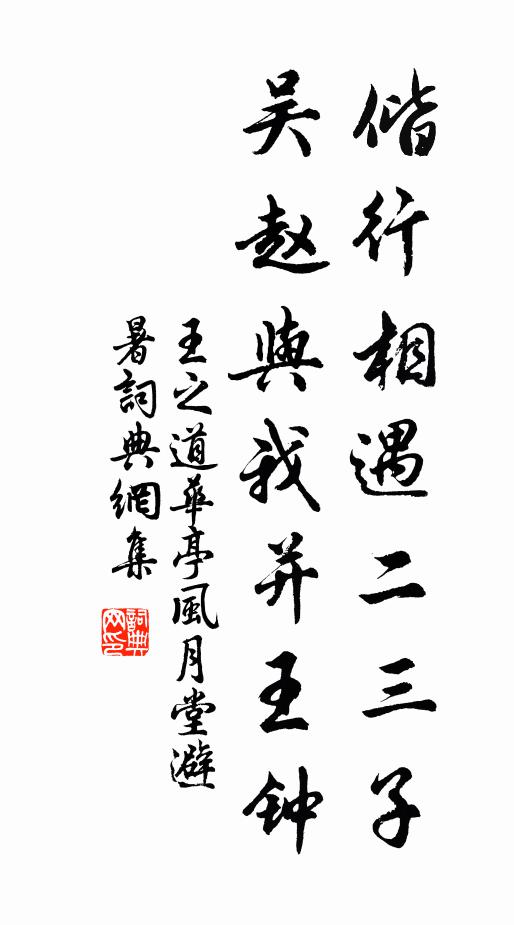 偕行相遇二三子
吴赵與我并王钟
王之道華亭風月堂避
暑詞典網集
詞典
网印